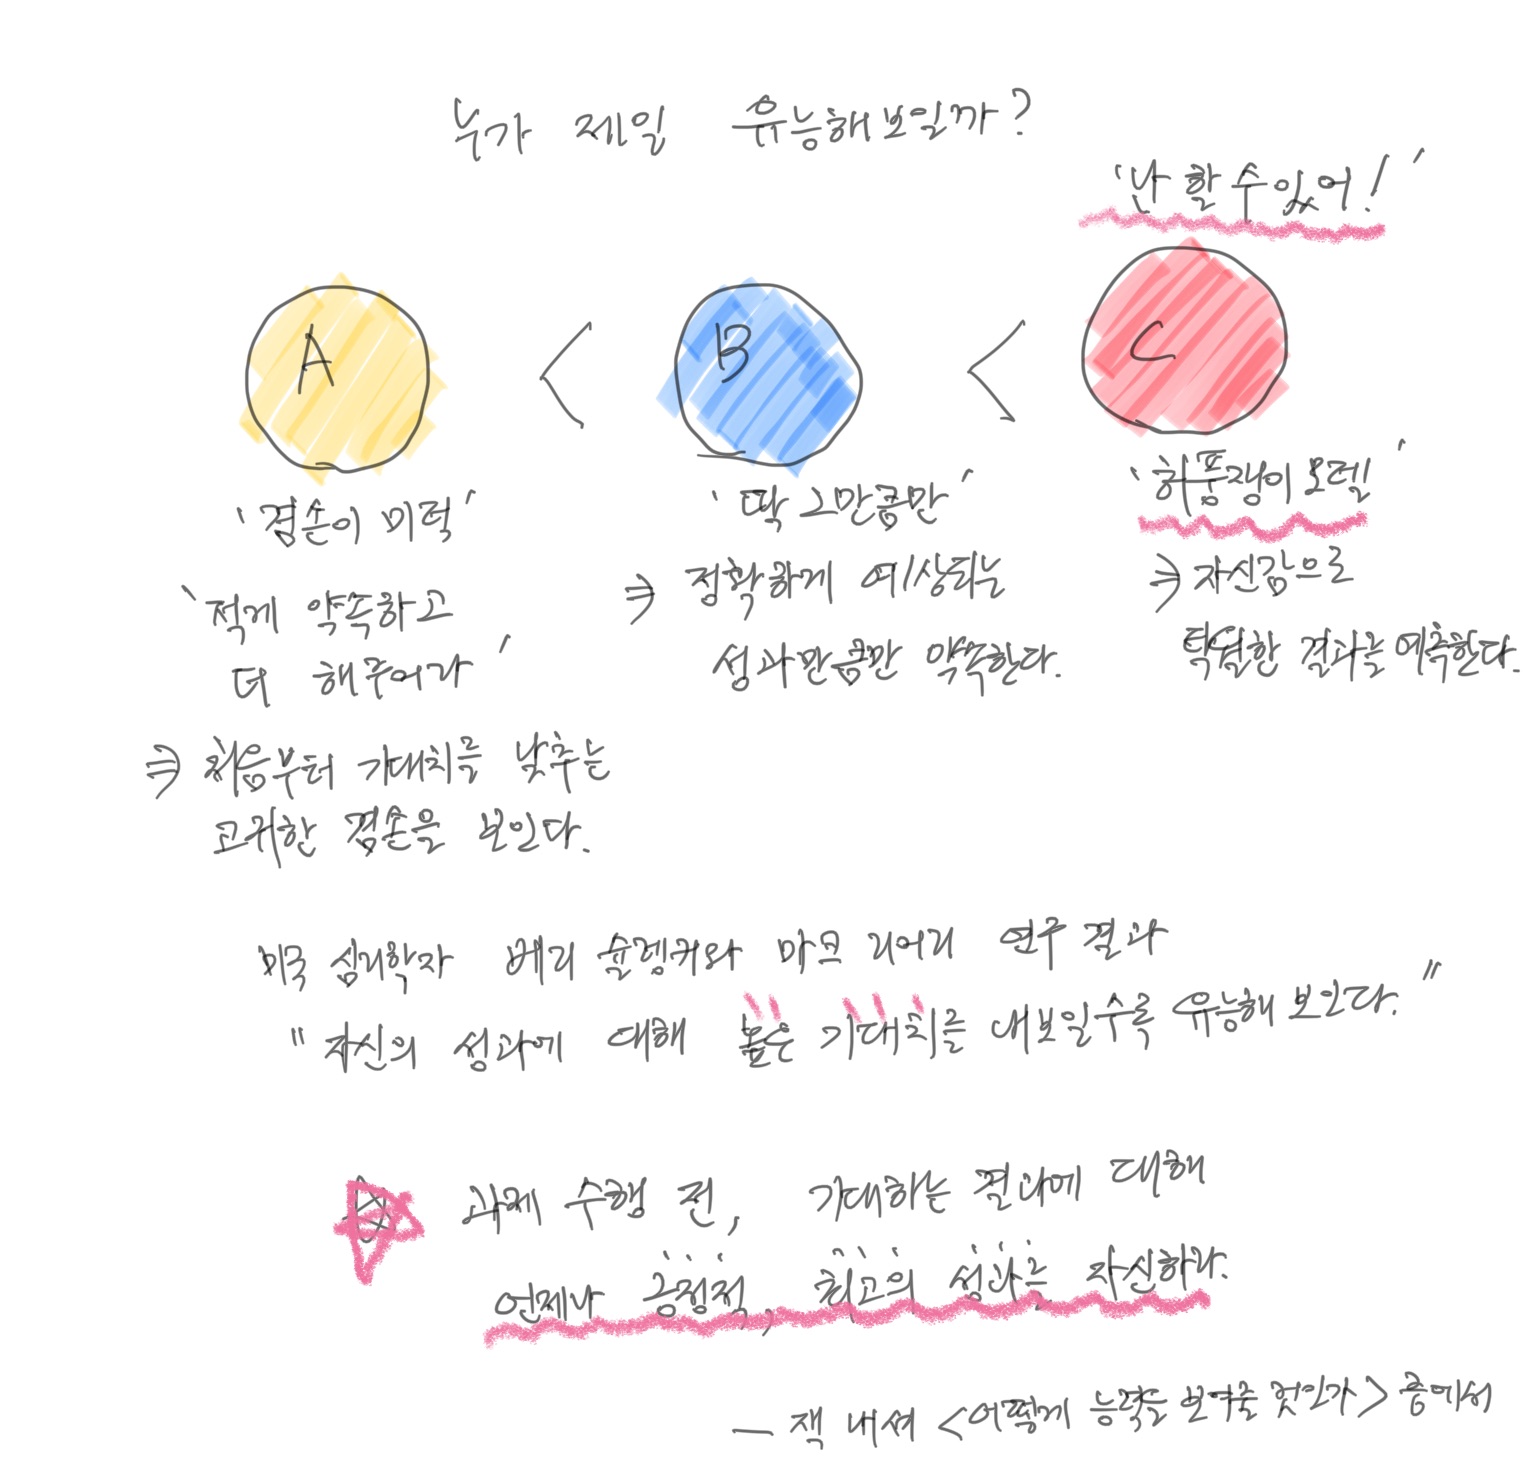 누가 제일 유능해보일까?
'난 할 수 있어!'
A < B < C
'겸손이 미덕'
'적게 약속하고
더 해주어라'
⇒ 처음부터 기대치를 낮추는
고귀한 겸손을 보인다.
'딱 그만큼만'
⇒ 정확하게 예상되는
성과만큼만 약속한다.
'허풍쟁이 모델'
⇒ 자신감으로
탁월한 결과를 예측한다.
미국 심리학자 베리 슐렝커와 마크 리어리 연구 결과
"자신의 성과에 대해 높은 기대치를 내보일수록 유능해 보인다."
과제 수행 전, 기대하는 결과에 대해
언제나 긍정적, 최고의 성과를 자신하라.
— 잭 내셔 <어떻게 능력을 보여줄 것인가> 중에서